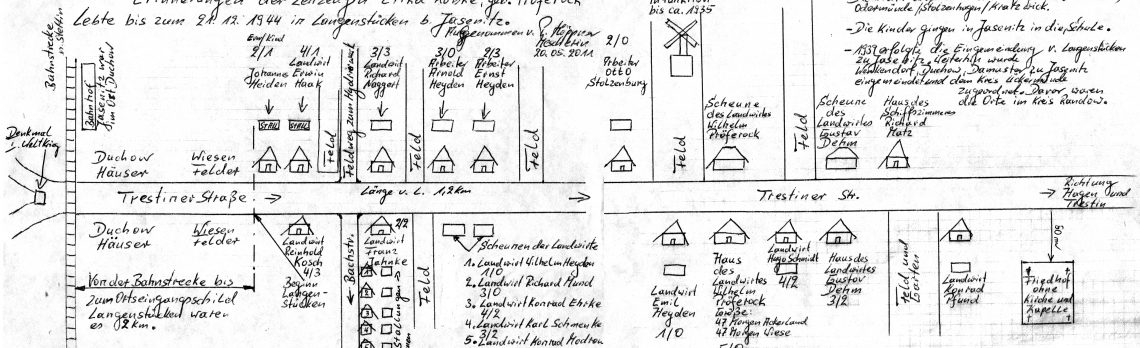 Erinnerungen der Zeitzeugin Erika geb. Pröferock
Lebte bis zum 21.12.1944 in Langenstücken b. Jasenitz.
Aufgenommen v.
20.05.2011
Bahnstrecke
n. Stettin
Bahnhof
Jasenitz war
im Ort Duchow
Erw/Kind
2/1
Johannes
Heiden
Stall
4/1
Landwirt
Erwin
Haak
Stall
Feld
Feldweg zum Hydrierwerk
3/3
Landwirt
Richard
Naggert
Feld
3/0
Arbeiter
Arnold
Heyden
2/3
Arbeiter
Ernst
Heyden
Feld
2/0
Arbeiter
Otto
Stolzenburg
bis ca. 1935
Feld
Scheune
des Landwirtes
Wilhelm
Pröferock
Feld
Scheune
des
Landwirtes
Gustav
Dehm
Haus des
Schiffszimmerers
Richard
Matz
Odermünde /Stolzenhagen/Kratzwick.
- Die Kinder gingen in Jasenitz in die Schule.
- 1939 erfolgte die Eingemeindung v. Langenstücken
zu Jasenitz. Weiterhin wurde
Wenkendorf, Duchow, Damuster zu Jasenitz
eingemeindet und dem Kreis Ueckermünde
zugeordnet. Davor waren
die Orte im Kreis Randow.
Denkmal
I. Weltkrieg
Duchow
Häuser
Wiesen
Felder
Trestiner Straße
Länge v. L. 1,2km
Trestiner Str.
Richtung
Hagen und
Trestin
Duchow
Häuser
Wiesen
Felder
Von der Bahnstrecke bis
zum Ortseingangsschild
Langenstücken waren
es 2km.
Landwirt
Reinhold
Kosch
4/3
Beginn
Langen-
stücken
Bachstr.
2/2
Landwirt
Franz
Jahnke
Stallungen
Feld
Scheunen der Landwirte
1. Landwirt Wilhelm Heyden
1/0
2. Landwirt Richard Mund
3/0
3. Landwirt Konrad Ehrke
4/2
4. Landwirt Karl Schmenke
3/2
5. Landwirt Konrad Modrow
Landwirt
Emil
Heyden
1/0
Haus
des
Landwirtes
Wilhelm
Pröferock
Größe:
47 Morgen Ackerland
47 Morgen Wiese
5/0
Landwirt
Hugo Schmidt
4/2
Haus des
Landwirtes
Gustav
Dehm
3/2
Feld und
Garten
Landwirt
Konrad
Pfund
50 m
Friedhof
ohne
Kirche und
Kapelle